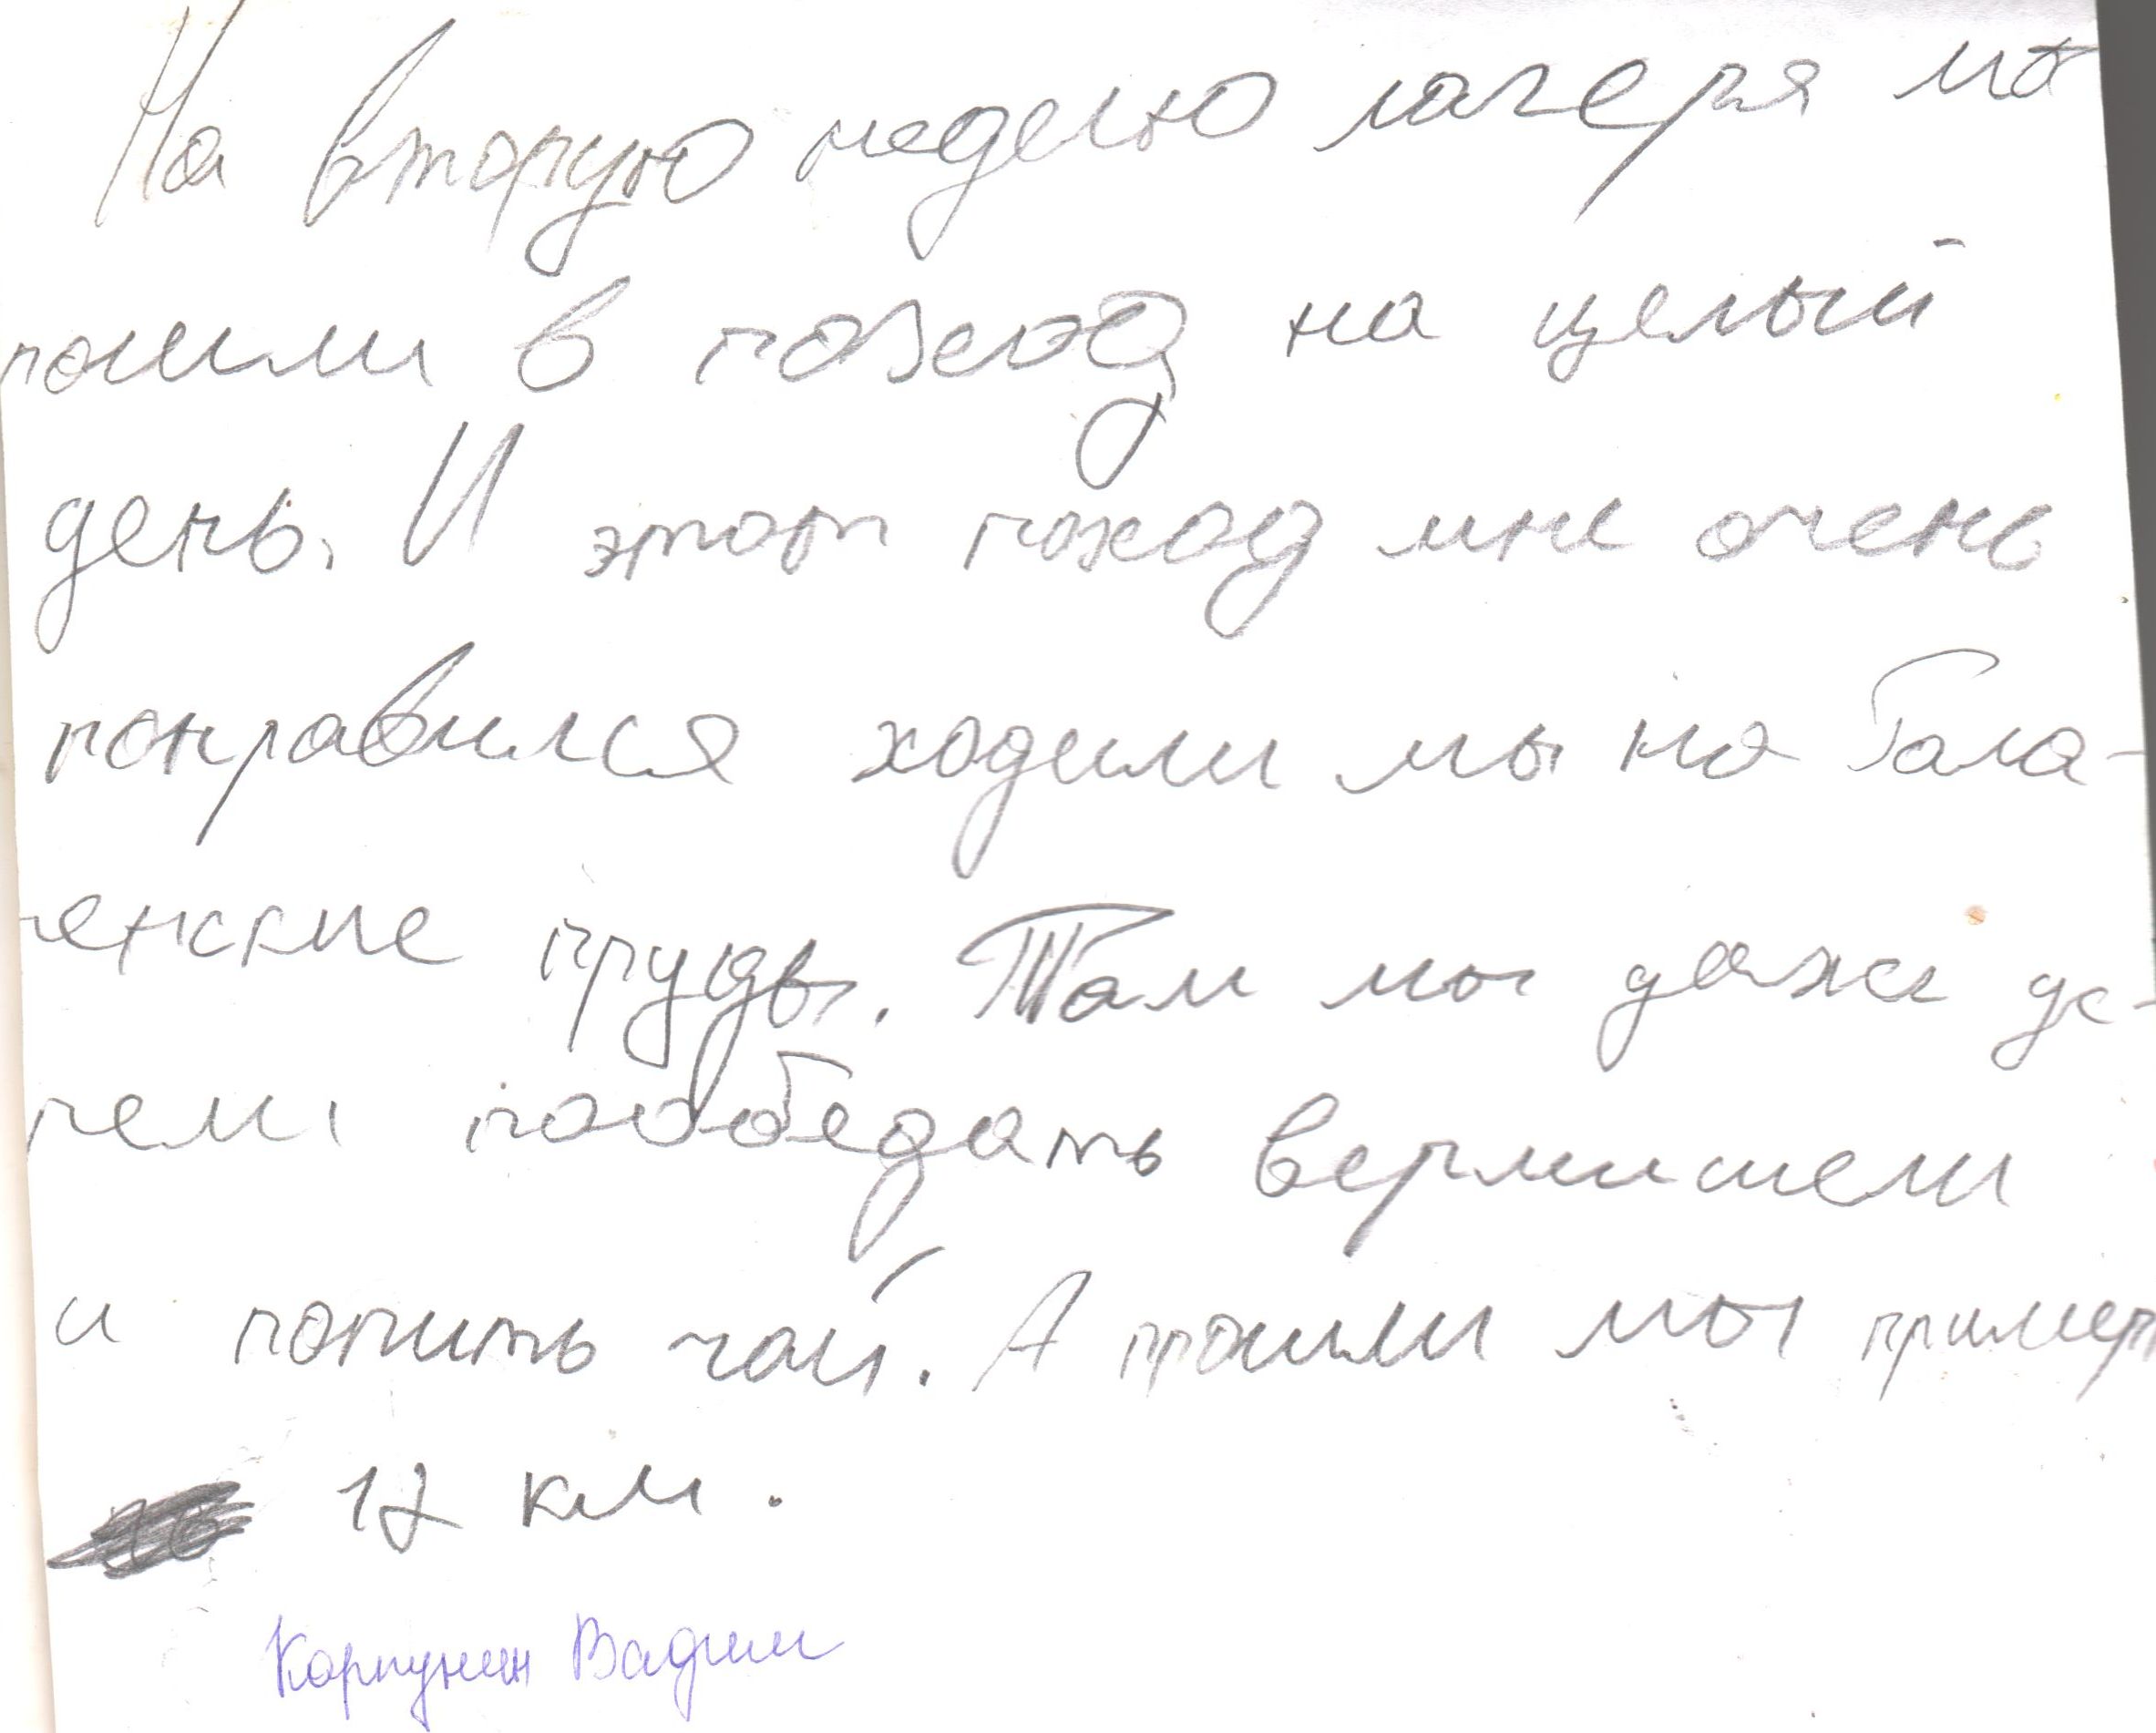 На вторую неделю лагеря мы
пошли в поход на целый
день. И этот поход мне очень
понравился ходили мы на Гала-
ченские пруды. Там мы даже ус-
пели пообедать вермишели
и попить чай. А прошли мы пример
12 км.
Карпунин Вадим